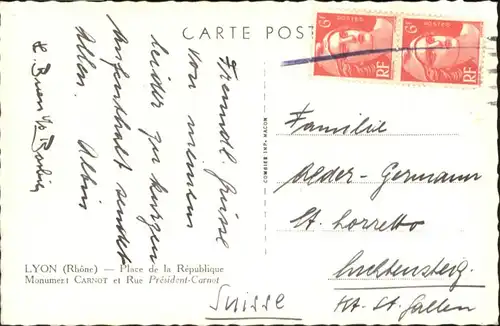 CARTE POST
6F
POSTES
RF
6F
POSTES
RF
Freundl. Grüsse
von meinem
leider zu kurzen
Aufenthalt sendet
Allen. Albin
COMBIER IMP. MACON
Familie
Alder-Germann
St. Lorretto
Lichtensteig.
Kt. St. Gallen
Suisse
LYON (Rhône) — Place de la République
Monument CARNOT et Rue Président-Carnot